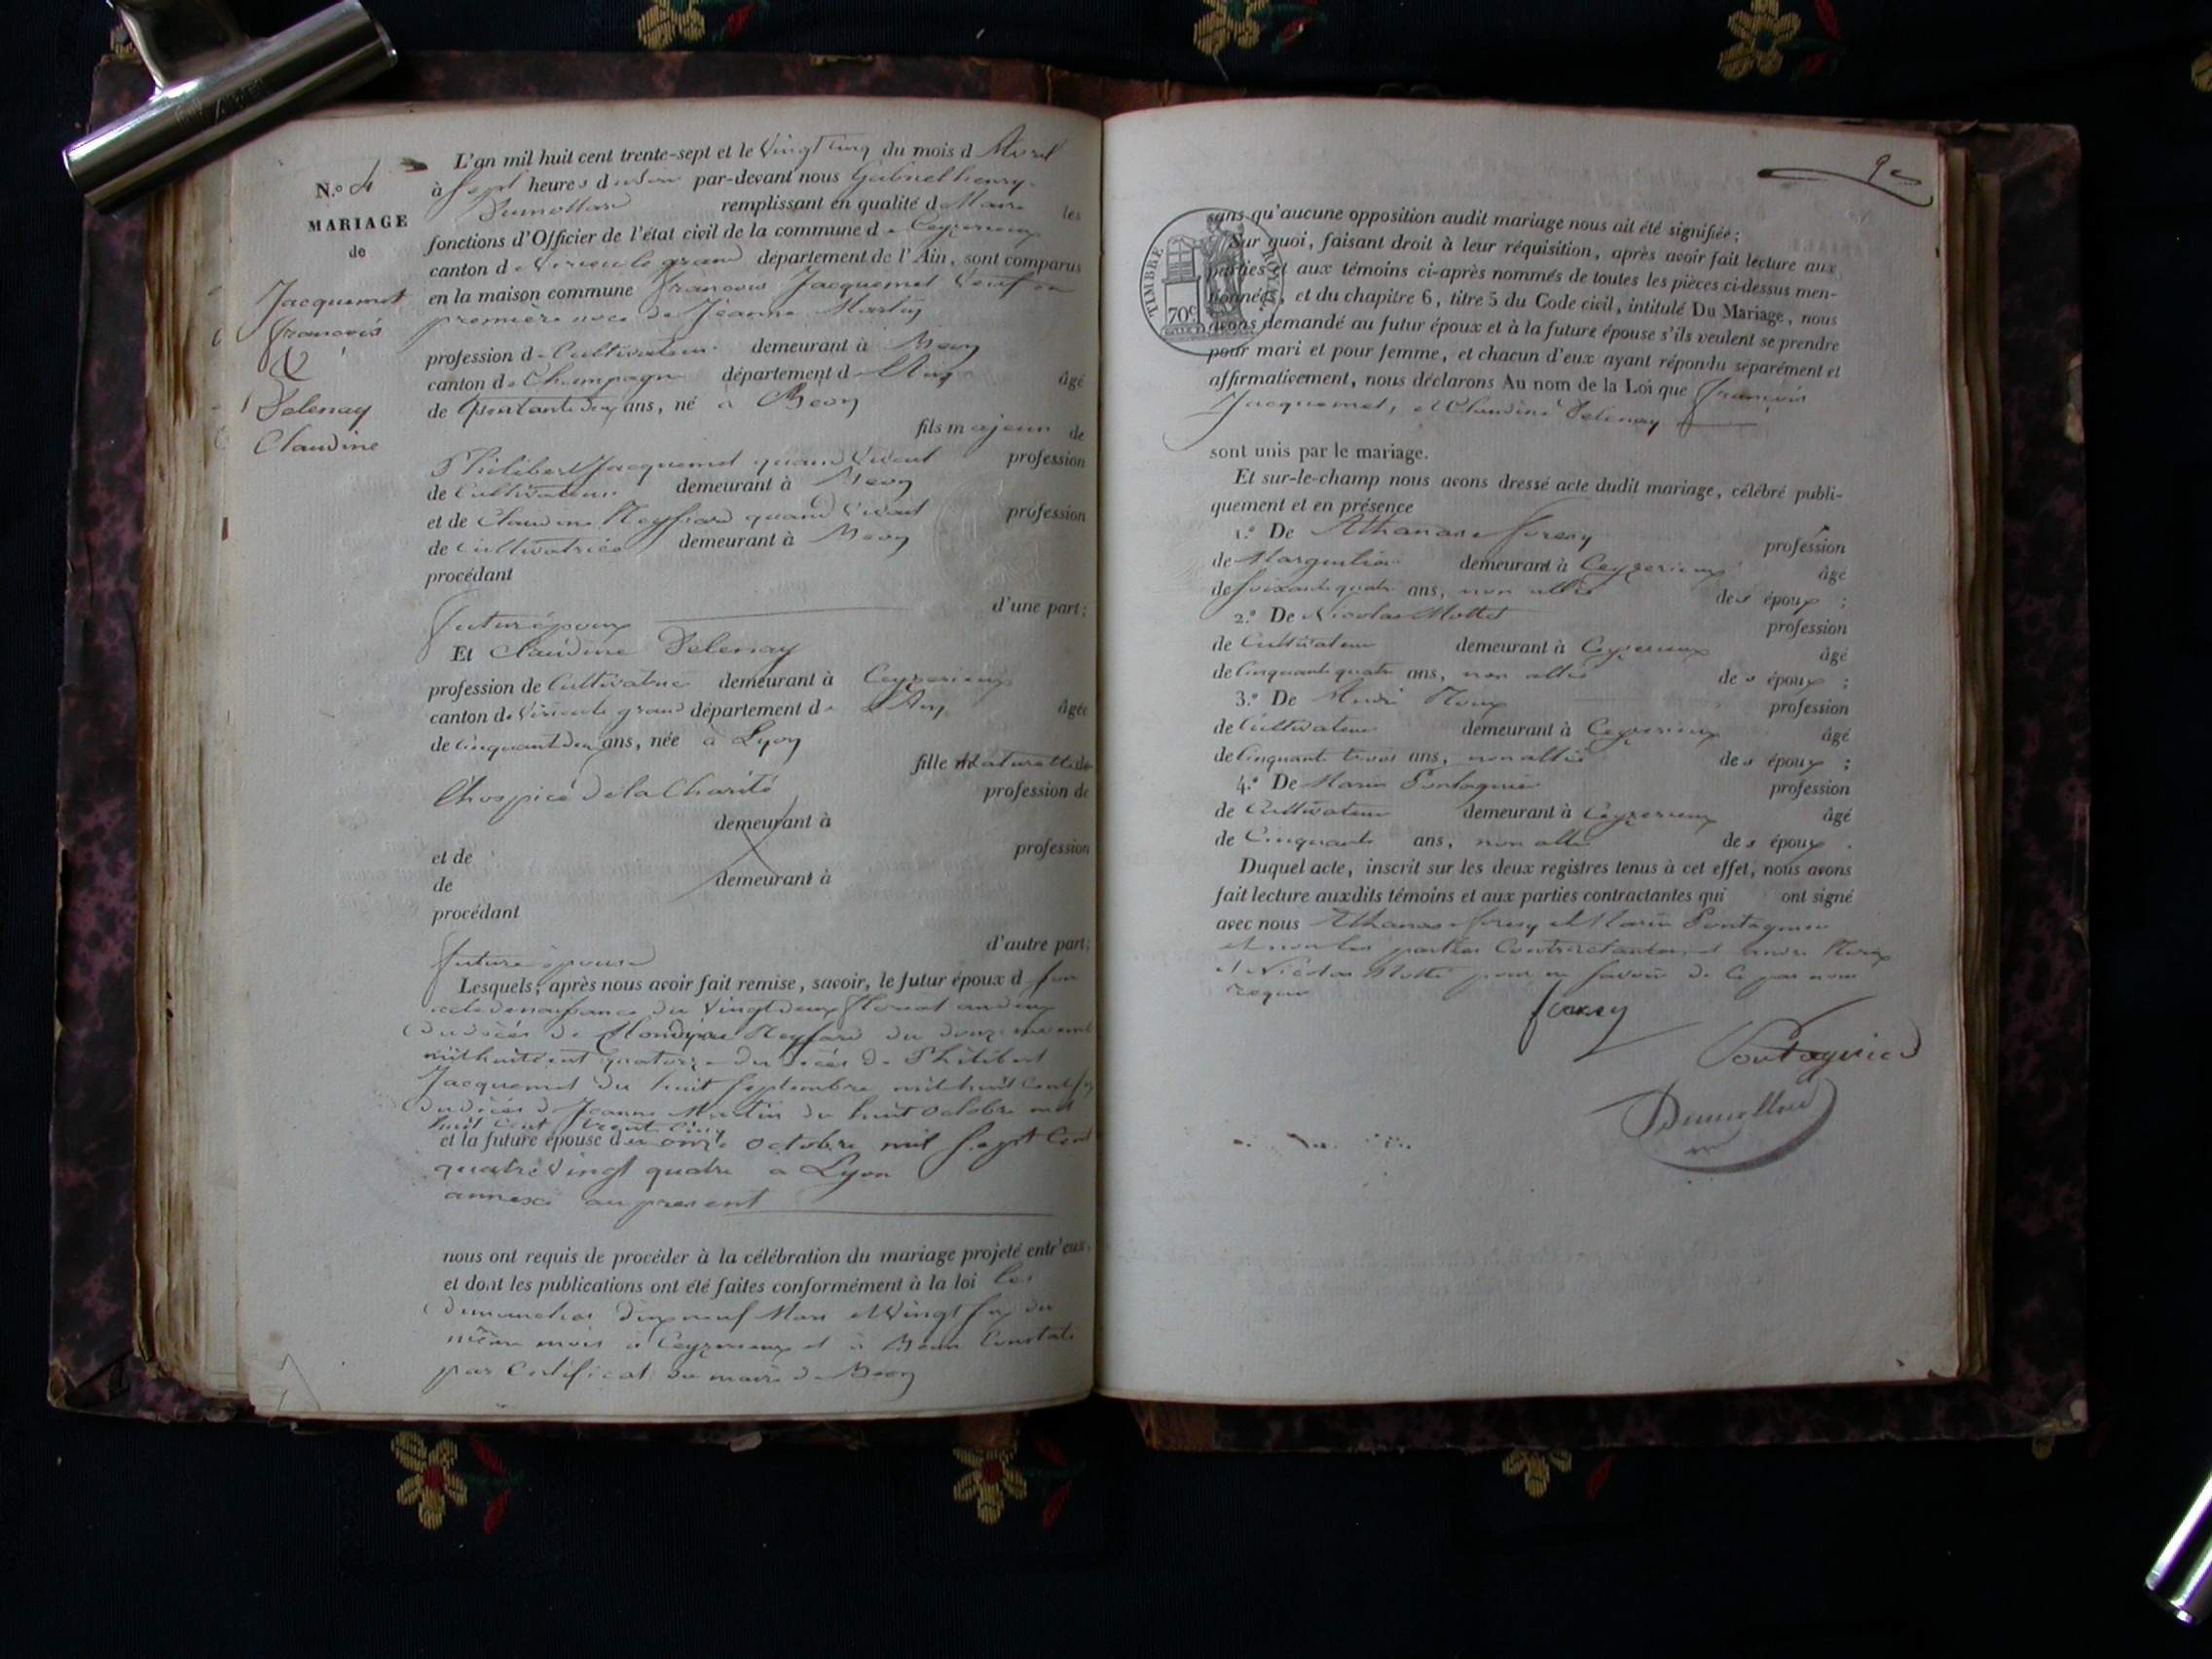 N.o 4
MARIAGE
de
Jacquemet
françois
&
Delenay
Claudine
L'an mil huit cent trente-sept et le Vingt Cinq du mois d Avril
à Sept heures du soir par-devant nous Gabriel henry
Dumollard remplissant en qualité d Maire les
fonctions d'Officier de l'état civil de la commune de Ceyzerieux
canton de Virieu le grand département de l'Ain, sont comparus
en la maison commune François Jacquemet Veuf en
première noce de Jeanne Martin
profession de Cultivateur demeurant à Beon
canton de Champagne département d l'Ain âgé
de Quarante deux ans, né à Beon
fils majeur de
Philibert Jacquemet quand Vivait profession
de Cultivateur demeurant à Beon
et de Claudine Reyssard quand Vivait profession
de Cultivatrice demeurant à Beon
procédant
d'une part;
futur époux
Et Claudine Delenay
profession de Cultivatrice demeurant à Ceyzerieux
canton de Virieu le grand département de l'Ain âgée
de Cinquante deux ans, née à Lyon
fille Naturelle de
l'hospice de la Charité profession de
demeurant à
et de profession
de demeurant à
procédant
d'autre part;
future épouse
Lesquels, après nous avoir fait remise, savoir, le futur époux d son
acte de naissance du Vingt deux floreal an deux
du décès de Claudine Reyssard du douze
mil huit cent quatorze du décès de Philibert
Jacquemet du huit Septembre mil huit Cent
du décès de Jeanne Martin du huit octobre mil
huit cent trente Cinq
et la future épouse du onze octobre mil Sept Cent
quatre Vingt quatre a Lyon
annexé au present
nous ont requis de procéder à la célébration du mariage projeté entr'eux,
et dont les publications ont été faites conformément à la loi les
dimanches dix neuf Mars et Vingt Six du
même mois à Ceyzerieux et à Beon Constaté
par Certificat du maire de Beon
TIMBRE ROYAL
70c
sans qu'aucune opposition audit mariage nous ait été signifiée;
Sur quoi, faisant droit à leur réquisition, après avoir fait lecture aux
parties et aux témoins ci-après nommés de toutes les pièces ci-dessus men-
tionnées, et du chapitre 6, titre 5 du Code civil, intitulé Du Mariage, nous
avons demandé au futur époux et à la future épouse s'ils veulent se prendre
pour mari et pour femme, et chacun d'eux ayant répondu séparément et
affirmativement, nous déclarons Au nom de la Loi que François
Jacquemet, et Claudine Delenay
sont unis par le mariage.
Et sur-le-champ nous avons dressé acte dudit mariage, célébré publi-
quement et en présence
1.o De Athanase profession
de Marguillier demeurant à Ceyzerieux âgé
de Soixante quatre ans, non allié des époux ;
2.o De Nicolas Mottet profession
de Cultivateur demeurant à Ceyzerieux âgé
de Cinquante quatre ans, non allié des époux ;
3.o De André Roux profession
de Cultivateur demeurant à Ceyzerieux âgé
de Cinquante trois ans, non allié des époux ;
4.o De Marin Pontagnier profession
de Cultivateur demeurant à Ceyzerieux âgé
de Cinquante ans, non allié des époux .
Duquel acte, inscrit sur les deux registres tenus à cet effet, nous avons
fait lecture auxdits témoins et aux parties contractantes qui ont signé
avec nous Athanase et Marin Pontagnier
et non les parties Contractantes, et andré Roux
et Nicolas Mottet pour ne Savoir de Ce par nous
requis
Pontagnier
Dumollard